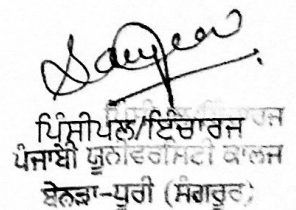 ਪ੍ਰਿੰਸੀਪਲ/ਇੰਚਾਰਜ
ਪੰਜਾਬੀ ਯੂਨੀਵਰਸਿਟੀ ਕਾਲਜ
ਬੇਨੜਾ-ਧੂਰੀ (ਸੰਗਰੂਰ)